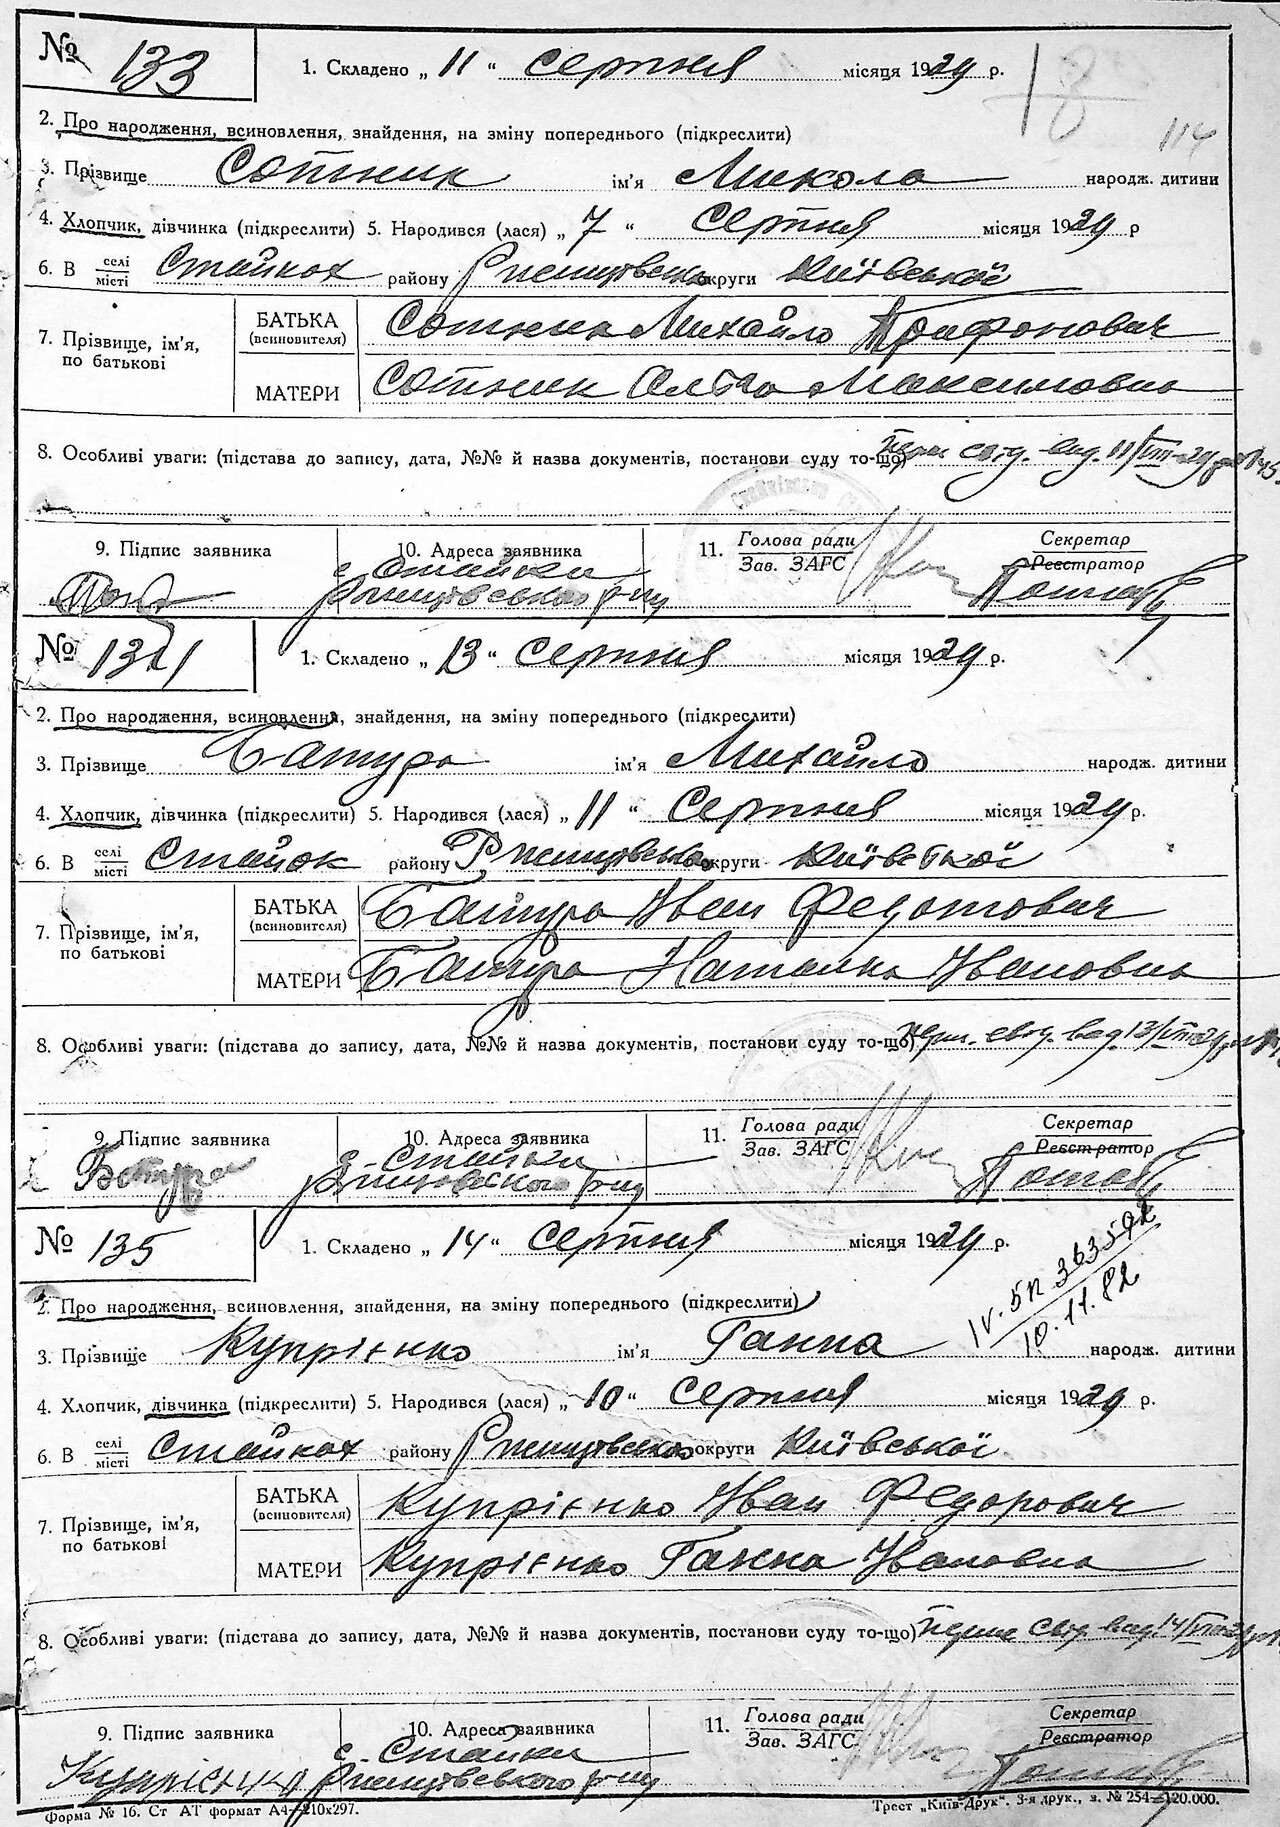 № 133
1. Складено „ 11 “ серпня місяця 1929 р.
18
114
2. Про народження, всиновлення, знайдення, на зміну попереднього (підкреслити)
3. Прізвище Сотник ім'я Микола народж. дитини
4. Хлопчик, дівчинка (підкреслити) 5. Народився (лася) „ 7 “ Серпня місяця 1929 р
6. В селі місті Стайках району Ржищівськ округи Київської
7. Прізвище, ім'я, по батькові
БАТЬКА (всиновителя) Сотник Михайло Трифонович
МАТЕРИ Сотник Ольга Максимовна
8. Особливі уваги: (підстава до запису, дата, №№ й назва документів, постанови суду то-що) вид. 11/VIII-29 р
9. Підпис заявника
10. Адреса заявника с. Стайки Ржищівського р-ну
11. Голова ради Зав. ЗАГС
Секретар Реєстратор
№ 134
1. Складено „ 13 “ серпня місяця 1929 р.
2. Про народження, всиновлення, знайдення, на зміну попереднього (підкреслити)
3. Прізвище Батура ім'я Михайло народж. дитини
4. Хлопчик, дівчинка (підкреслити) 5. Народився (лася) „ 11 “ Серпня місяця 1929 р.
6. В селі місті Стайок району Ржищівськ округи Київської
7. Прізвище, ім'я, по батькові
БАТЬКА (всиновителя) Батура Іван Федотович
МАТЕРИ Батура Наталка Івановна
8. Особливі уваги: (підстава до запису, дата, №№ й назва документів, постанови суду то-що) вид 13/VIII-29 р
9. Підпис заявника Батура
10. Адреса заявника с. Стайки Ржищівського р-ну
11. Голова ради Зав. ЗАГС
Секретар Реєстратор
№ 135
1. Складено „ 14 “ серпня місяця 1929 р.
IV. БК 363592
10.11.82
2. Про народження, всиновлення, знайдення, на зміну попереднього (підкреслити)
3. Прізвище Купрієнко ім'я Ганна народж. дитини
4. Хлопчик, дівчинка (підкреслити) 5. Народився (лася) „ 10 “ Серпня місяця 1929 р.
6. В селі місті Стайках району Ржищівськ округи Київської
7. Прізвище, ім'я, по батькові
БАТЬКА (всиновителя) Купрієнко Іван Федорович
МАТЕРИ Купрієнко Ганна Івановна
8. Особливі уваги: (підстава до запису, дата, №№ й назва документів, постанови суду то-що) вид 14/VIII-29 р
9. Підпис заявника Купрієнко
10. Адреса заявника с. Стайки Ржищівського р-ну
11. Голова ради Зав. ЗАГС
Секретар Реєстратор
Форма № 16. Ст АТ формат А4—210х297.
Трест „Київ-Друк". 3-я друк., з. № 254—120.000.